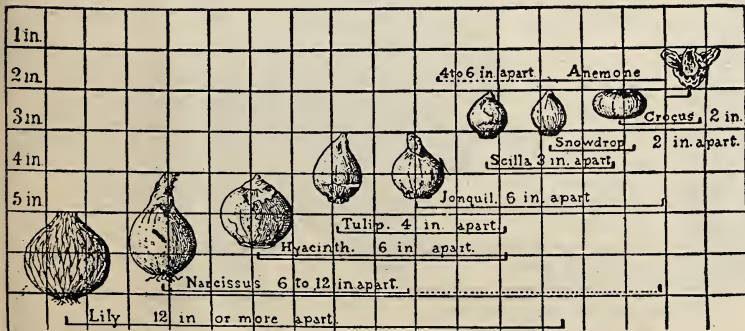 1 in.
2 in.
4 to 6 in. apart Anemone
3 in.
Crocus 2 in.
Snowdrop 2 in. apart.
4 in.
Scilla 3 in. apart
5 in.
Jonquil. 6 in. apart
Tulip. 4 in. apart.
Hyacinth. 6 in. apart.
Narcissus 6 to 12 in apart.
Lily 12 in or more apart.